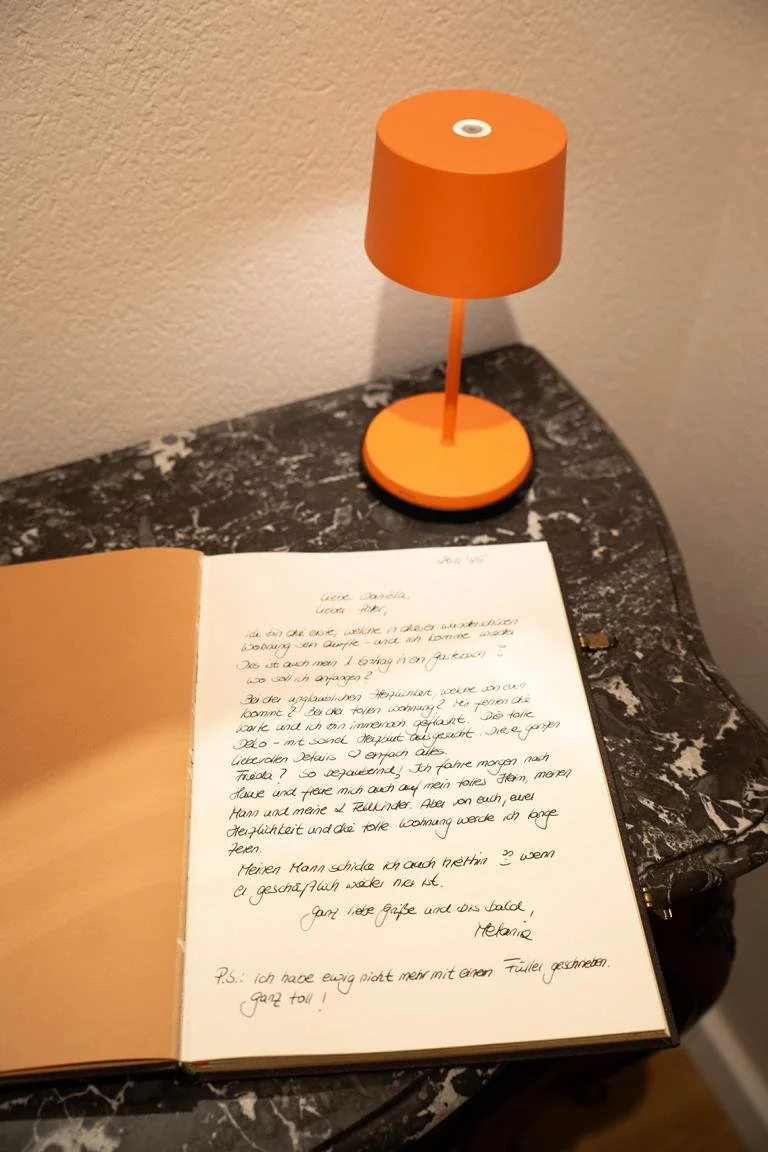 Liebe Daniela,
lieber Peter,
ich bin die erste, welche in dieser wunderschönen
Wohnung sein durfte - und ich komme wieder
Dies ist auch mein 1. Eintrag in ein Gästebuch
wo soll ich anfangen?
Bei der unglaublichen Herzlichkeit, welche von euch
kommt? Bei der tollen Wohnung? Mir fehlen die
Worte und ich bin immernoch geflasht. Die tolle
Deko - mit soviel Herzblut ausgesucht. Diese ganzen
liebevollen Details ♡ einfach alles.
Frieda? So bezaubernd! Ich fahre morgen nach
Hause und freue mich auch auf mein tolles Heim, meinen
Mann und meine 2 Fellkinder. Aber von euch, eurer
Herzlichkeit und die tolle Wohnung werde ich lange
zehren.
Meinen Mann schicke ich auch hierhin wenn
er geschäftlich wieder hier ist.
Ganz liebe Grüße und bis bald,
Melanie
P.S.: ich habe ewig nicht mehr mit einem Füller geschrieben.
Ganz toll!